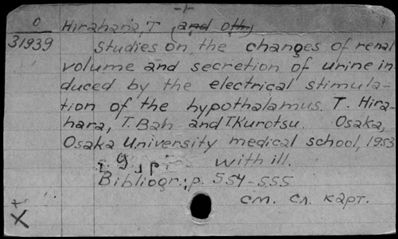 О
31939
Hirahara, T. (and oth)
Studies on the changes of renal
volume and secretion of urine in
duced by the electrical stimula-
tion of the hypothalamus. T. Hira-
hara, T. Bah and T. Kurotsu. Osaka,
Osaka University medical school, 1953
with ill.
Bibliogr.: p. 554-555
см. сл. карт.
+
X